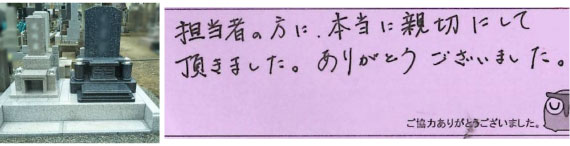 担当者の方に、本当に親切にして
頂きました。ありがとうございました。
ご協力ありがとうございました。